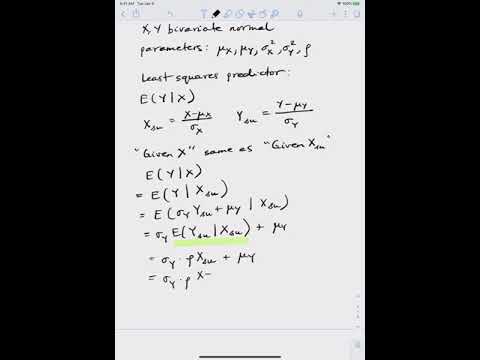 X, Y bivariate normal
parameters: μX, μY, σX², σY², ρ
Least squares predictor:
E(Y|X)
Xsu = X-μX / σX    Ysu = Y-μY / σY
"Given X" same as "Given Xsu"
E(Y|X)
= E(Y | Xsu)
= E(σY Ysu + μY | Xsu)
= σY E(Ysu | Xsu) + μY
= σY · ρXsu + μY
= σY · ρ X-